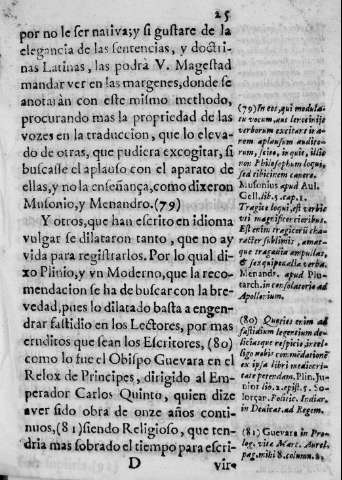 25
por no le ser nativa; y si gustare de la
elegancia de las sentencias, y doctri-
nas Latinas, las podrà V. Magestad
mandar ver en las margenes, donde se
anotaràn con este mismo methodo,
procurando mas la propriedad de las
vozes en la traduccion, que lo eleva-
do de otras, que pudiera excogitar, si
buscasse el aplauso con el aparato de
ellas, y no la enseñança, como dixeron
Musonio, y Menandro. (79)
Y otros, que han escrito en idioma
vulgar se dilataron tanto, que no ay
vida para registrarlos. Por lo qual di-
xo Plinio, y vn Moderno, que la reco-
mendacion se ha de buscar con la bre-
vedad, pues lo dilatado basta a engen-
drar fastidio en los Lectores, por mas
eruditos que sean los Escritores, (80)
como lo fue el Obispo Guevara en el
Relox de Principes, dirigido al Em-
perador Carlos Quinto, quien dize
aver sido obra de onze años conti-
nuos, (81) siendo Religioso, que ten-
dria mas sobrado el tiempo para escri-
D
vir
(79) In eos, qui modula-
tu vocum, aut
verborum excitare
rem aplausum audito-
rum, scito, in quit, illic
non Philosophum loqui,
sed tibicinem canere.
Musonius apud Aul.
Gell. lib. 5. cap. 1.
Tragice loqui, est verbis
vti magnificentioribus.
Est enim tragicorū cha-
racter sublimis, amat-
que tragœdia ampullas,
& sexquipedalia verba.
Menandr. apud Plu-
tarch. in consolatoria ad
Apollonium.
(80) enim ad
fastidium legentium de-
liciasque respicio, intel-
ligo nobis commēdationē
ex ipsa libri mediocri-
tate petendam. Plin. Ju-
nior lib. 2. epist. 5. &
Solorçar. Politic. Indiar.
in Dedicat. ad Regem.
(81) Guevara in Pro-
log. vitæ Marc. Aurel.
pag. mihi 8. column. 8.